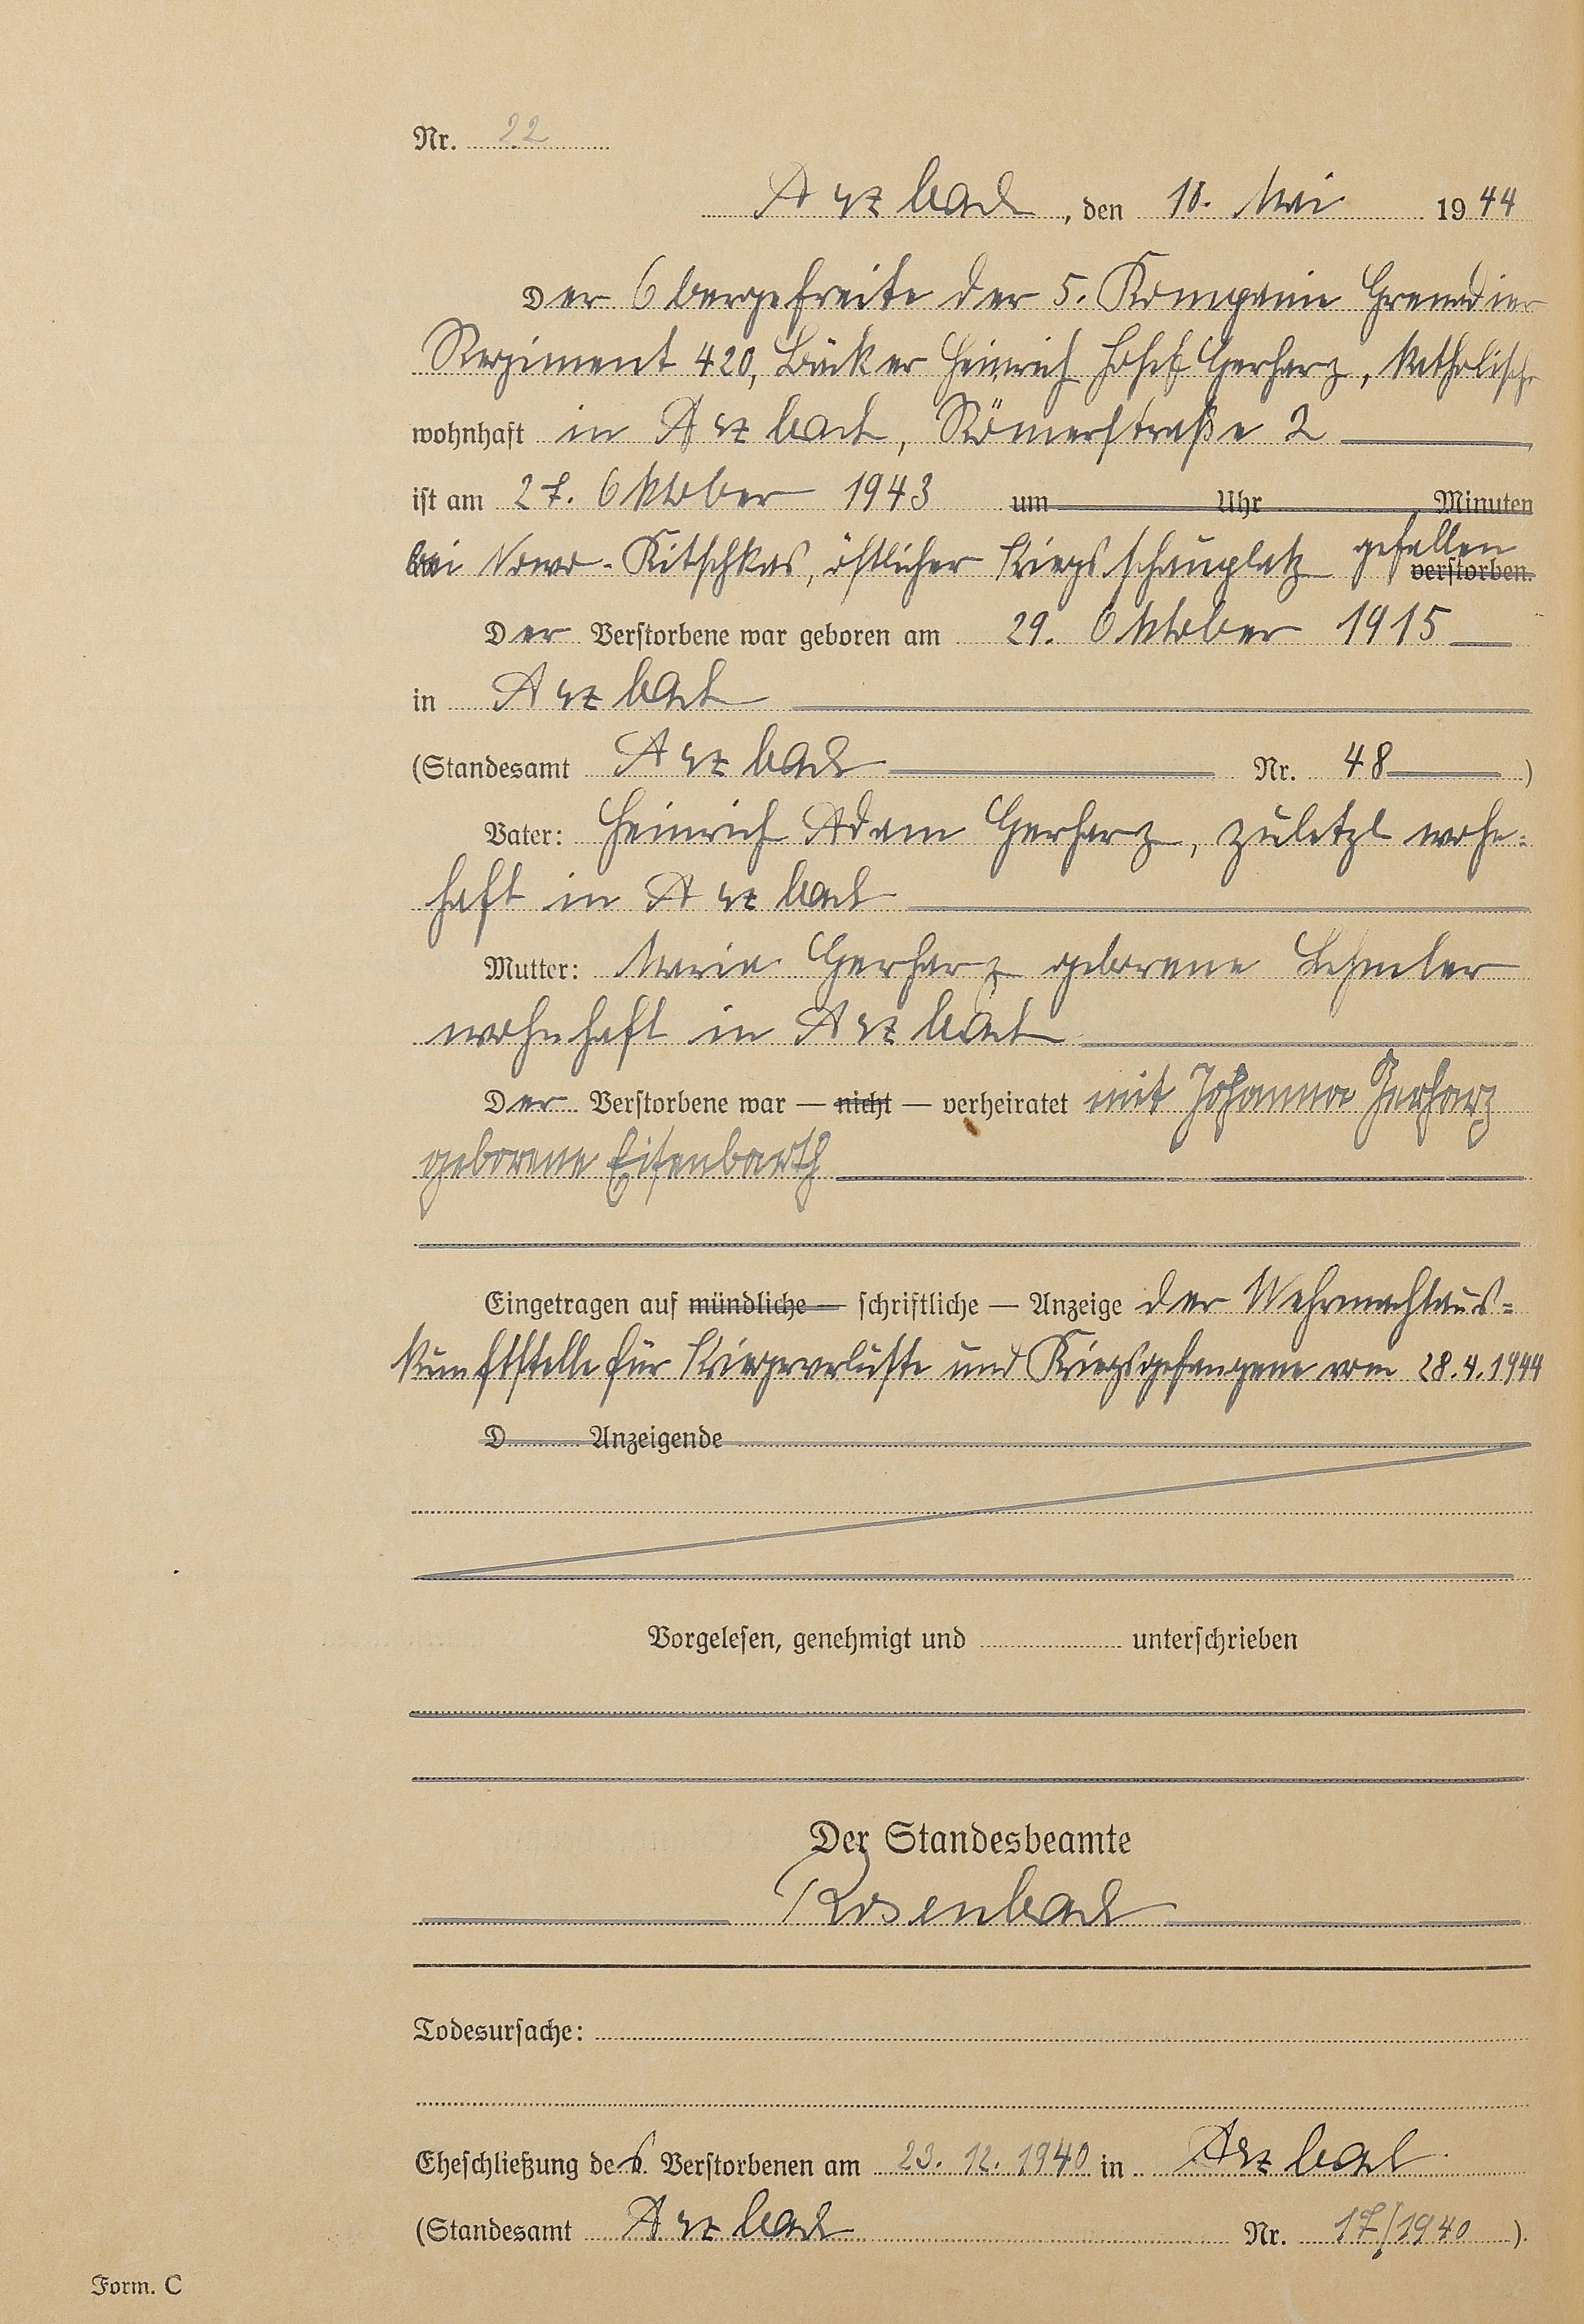 Nr. 22
Arzbach, den 10. Mai 1944
Der Obergefreite der 5. Kompanie Grenadier
Regiment 420, Bäcker Heinrich Josef Gerharz, katholisch
wohnhaft in Arzbach, Römerstraße 2
ist am 27. Oktober 1943 um Uhr Minuten
bei Nowo-Kitschkas, östlicher Kriegsschauplatz gefallen verstorben.
Der Verstorbene war geboren am 29. Oktober 1915
in Arzbach
(Standesamt Arzbach Nr. 48)
Vater: Heinrich Adam Gerharz, zuletzt wohn=
haft in Arzbach
Mutter: Maria Gerharz geborene Lehmler
wohnhaft in Arzbach
Der Verstorbene war — nicht — verheiratet mit Johanna Gerharz
geborene Eisenbarth
Eingetragen auf mündliche — schriftliche — Anzeige der Wehrmachtaus=
kunftstelle für Kriegerverluste und Kriegsgefangene vom 28.4.1944
D Anzeigende
Vorgelesen, genehmigt und unterschrieben
Der Standesbeamte
Rosenbach
Todesursache:
Eheschließung des Verstorbenen am 23.12.1940 in Arzbach
(Standesamt Arzbach Nr. 17/1940).
Form. C